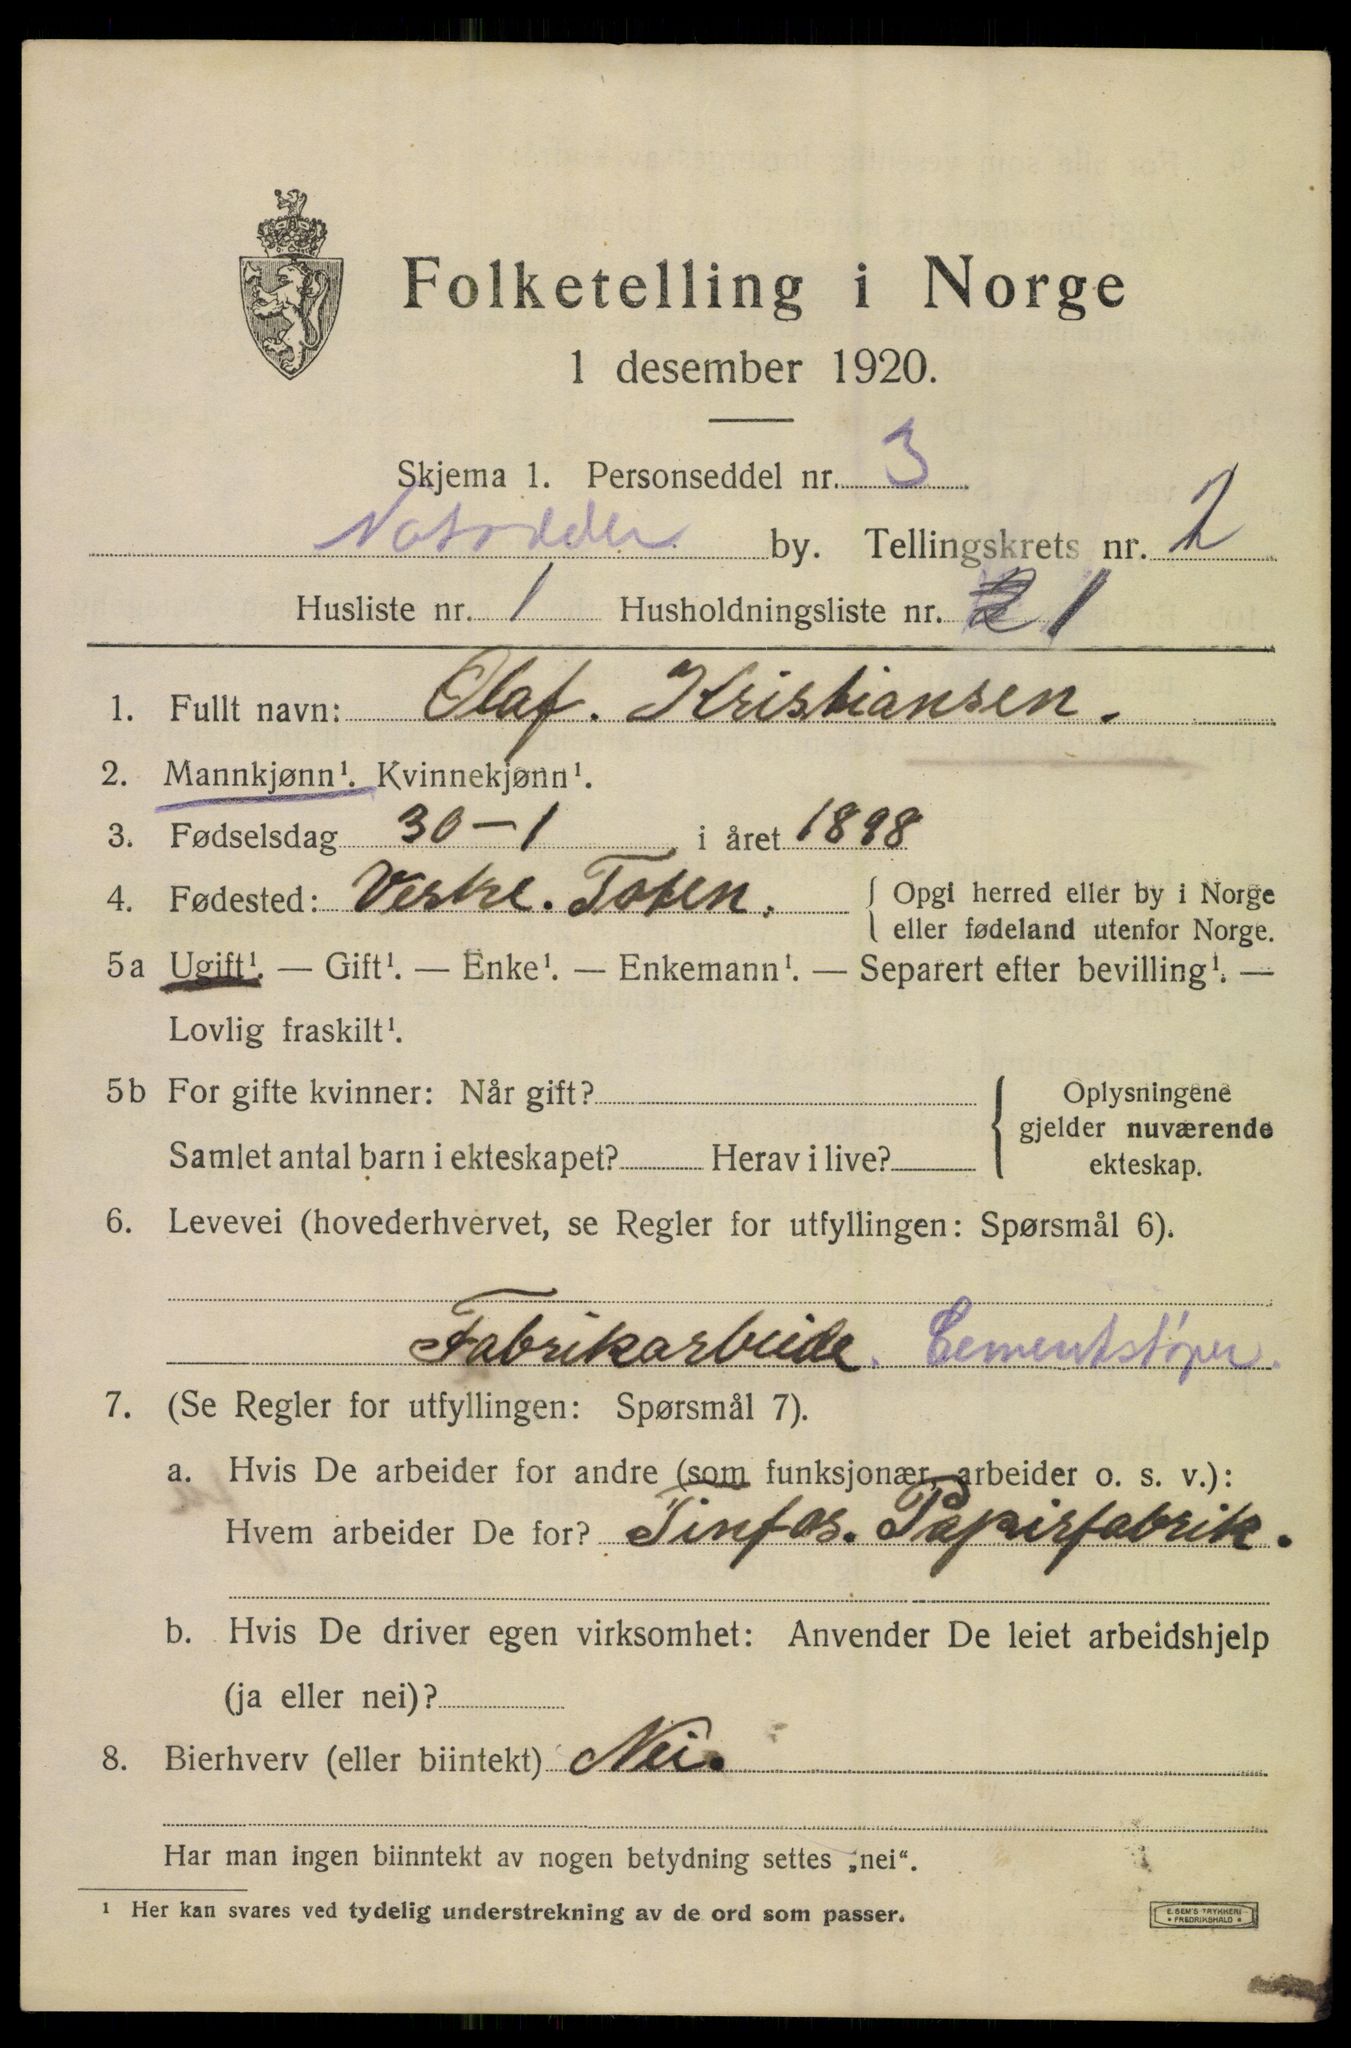 Folketelling i Norge
1 desember 1920.
Skjema 1. Personseddel nr. 3
Notodden by. Tellingskrets nr. 2
Husliste nr. 1 Husholdningsliste nr. 1
1. Fullt navn: Olaf. Kristiansen.
2. Mannkjønn¹. Kvinnekjønn¹.
3. Fødselsdag 30-1 i året 1898
4. Fødested: Vestre. Toten. { Opgi herred eller by i Norge
eller fødeland utenfor Norge.
5a Ugift¹. — Gift¹. — Enke¹. — Enkemann¹. — Separert efter bevilling¹. —
Lovlig fraskilt¹.
5b For gifte kvinner: Når gift? { Oplysningene
gjelder nuværende
Samlet antal barn i ekteskapet? Herav i live? ekteskap.
6. Levevei (hovederhvervet, se Regler for utfyllingen: Spørsmål 6).
Fabrikarbeide. Cementstøper.
7. (Se Regler for utfyllingen: Spørsmål 7).
a. Hvis De arbeider for andre (som funksjonær, arbeider o. s. v.):
Hvem arbeider De for? Tinfos. Papirfabrik.
b. Hvis De driver egen virksomhet: Anvender De leiet arbeidshjelp
(ja eller nei)?
8. Bierhverv (eller biintekt) Nei.
Har man ingen biinntekt av nogen betydning settes „nei“.
¹ Her kan svares ved tydelig understrekning av de ord som passer.
E. SEM'S TRYKKERI
FREDRIKSHALD